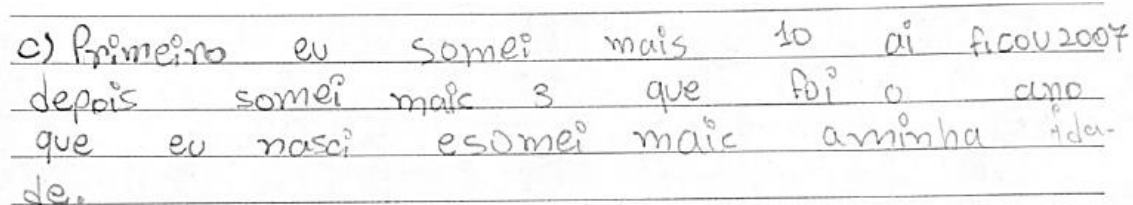 c) Primeiro eu somei mais 10 ai ficou 2007
depois somei mais 3 que foi o ano
que eu nasci esomei maic aminha ida-
de.